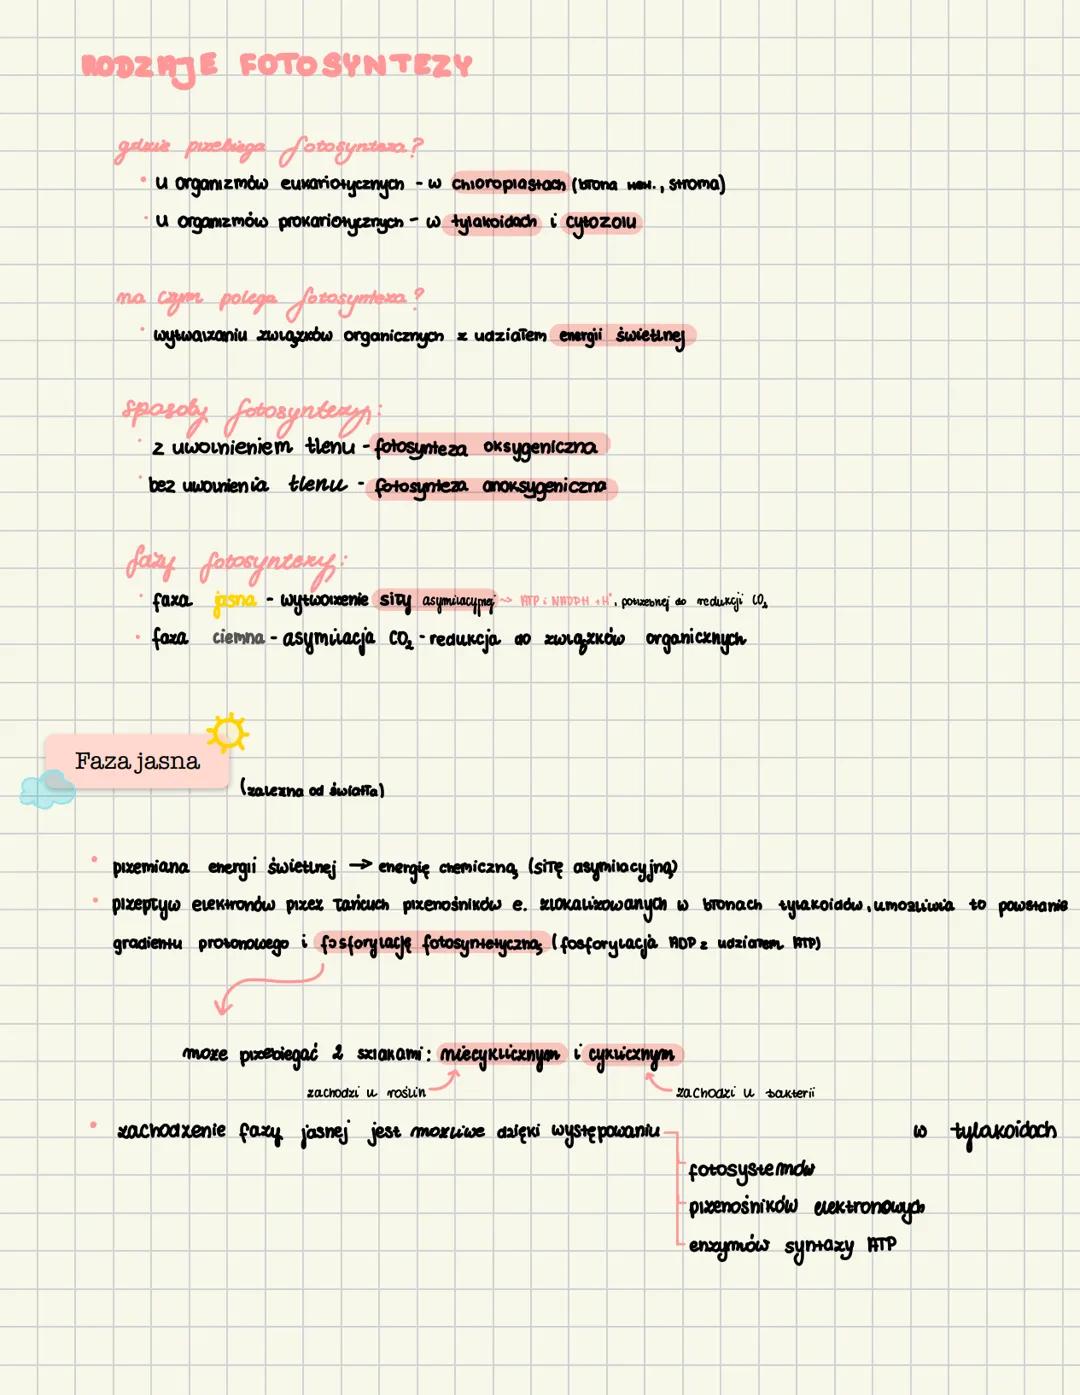 RODZAJE FOTOSYNTEZY
gdzie przebiega fotosynteza?
• u organizmów eukariotycznych - w chloroplastach (błona wew., stroma)
• u organizmów prokariotycznych - w tylakoidach i cytozolu
na czym polega fotosynteza?
• wytwarzaniu związków organicznych z udziałem energii świetlnej
sposoby fotosyntezy:
• z uwolnieniem tlenu - fotosynteza oksygeniczna
• bez uwolnienia tlenu - fotosynteza anoksygeniczna
fazy fotosyntezy:
• faza jasna - wytworzenie siły asymilacyjnej → ATP i NADPH + H⁺, potrzebnej do redukcji CO₂
• faza ciemna - asymilacja CO₂ - redukcja do związków organicznych
Faza jasna
(zależna od światła)
• przemiana energii świetlnej → energię chemiczną (siłę asymilacyjną)
• przepływ elektronów przez łańcuch przenośników e. zlokalizowanych w błonach tylakoidów, umożliwia to powstanie
gradientu protonowego i fosforylację fotosyntetyczną (fosforylacja ADP z udziałem ATP)
może przebiegać 2 szlakami: niecyklicznym i cyklicznym
zachodzi u roślin zachodzi u bakterii
• zachodzenie fazy jasnej jest możliwe dzięki występowaniu w tylakoidach
fotosystemów
przenośników elektronowych
enzymów syntazy ATP